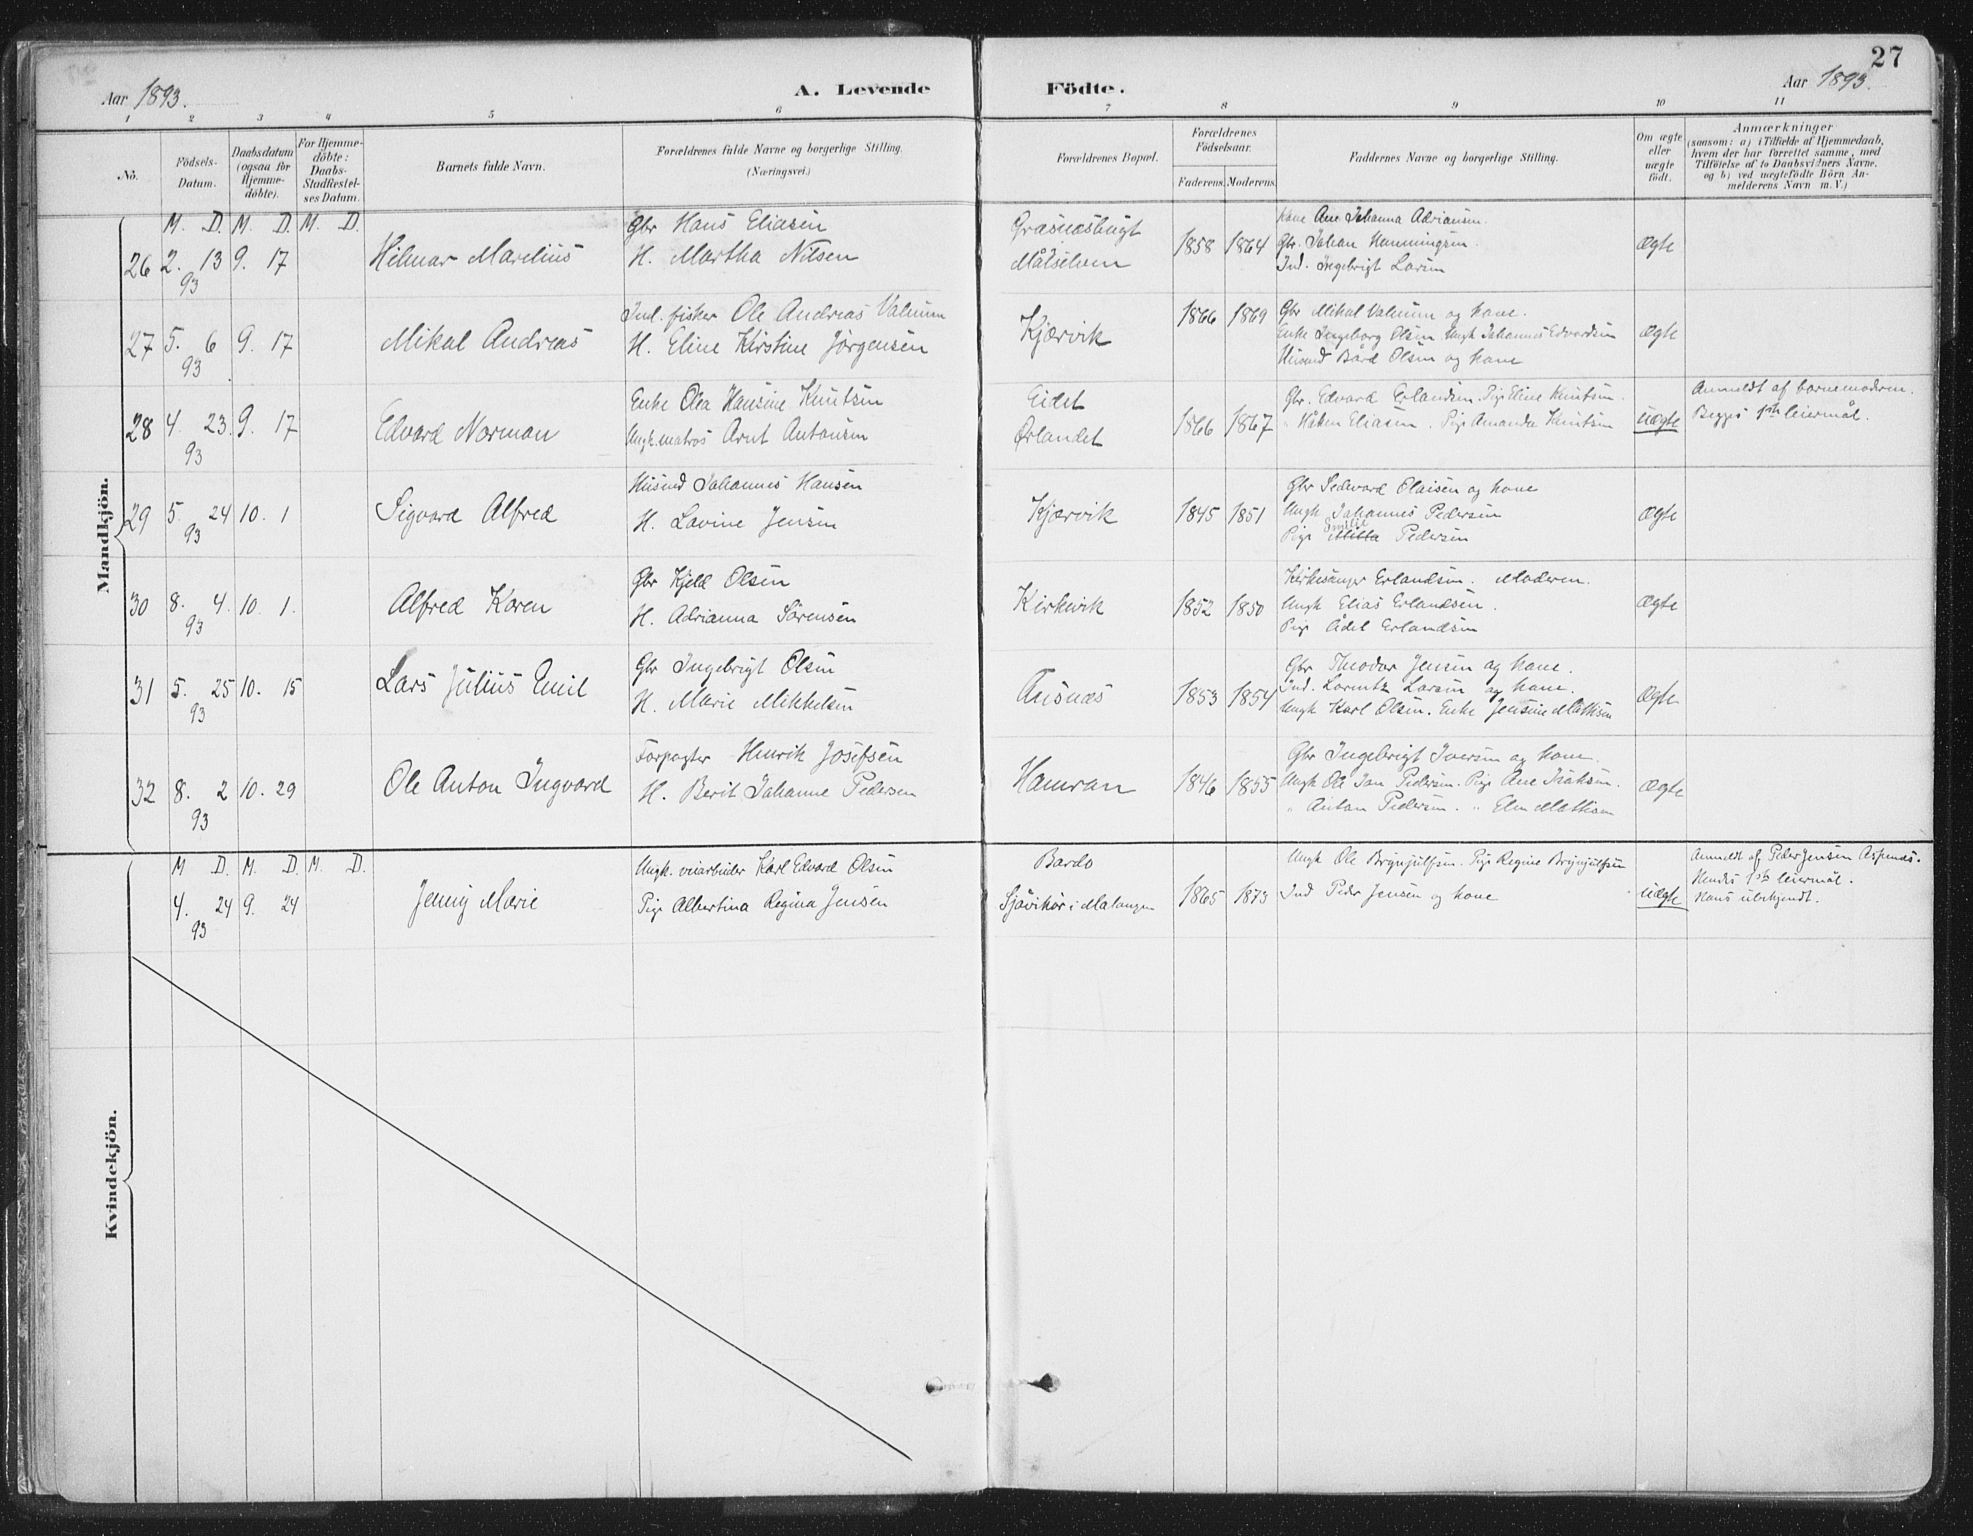 27
Aar 1893.
A. Levende Födte.
Aar 1893.
1 2 3 4 5 6 7 8 9 10 11
Nö.
Födsels-Datum.
Daabsdatum (ogsaa för Hjemme-döbte).
For Hjemme-döbte: Daabs-Stadfæstelses Datum.
Barnets fulde Navn.
Forældrenes fulde Navne og borgerlige Stilling.
(Næringsvei.)
Forældrenes Bopæl.
Forældrenes Födselsaar.
Faderens. Moderens.
Faddernes Navne og borgerlige Stilling.
Om ægte eller uægte födt.
Anmærkninger
(saasom: a) i Tilfælde af Hjemmedaab,
hvem der har forrettet samme, med
Tilföielse af to Daabsvidners Navne,
og b) ved uægtefödte Börn An-
melderens Navn m. V.)
Mandkjön.
M. D. M. D. M. D.
26 2. 13 93 9. 17 Hilmar Marelius
Gbr Hans Eliasen
H. Martha Nilsen
Græsnæsbugt
Målselven
1858 1864
Kone Ane Johanna Adriansen.
Gbr. Johan Hemmingsen.
Ind. Ingebrigt Larsen
Ægte
27 5. 6 93 9. 17 Mikal Andreas
Ind. fisker Ole Andreas Valnum
H. Eline Kirstine Jørgensen
Kjærvik
1866 1869
Gbr Mikal Valnum og kone.
Enke Ingeborg Olsen Ungk Johannes Edvardsen
Husmd Bård Olsen og kone
Ægte
28 4. 23. 93 9. 17 Edvard Norman
Enke Olea Hansine Knutsen
Ungk. matros Arnt Antonsen
Eidet
Ørlandet
1866 1867
Gbr. Edvard Erlandsen. Pige Eline Knutsen.
" Håken Eliasen. Pige Amanda Knutsen
Uægte
Anmeldt af barnemoderen.
Begges 1ste leiermål.
29 5. 24 93 10. 1 Sigvard Alfred
Husmd Johannes Hansen
H. Lavine Jensen
Kjærvik
1845 1851
Gbr Sedevard Olaisen og kone
Ungk Johannes Pedersen
Pige Emilie Pedersen
Ægte
30 8. 4. 93 10. 1. Alfred Koren
Gbr Kjeld Olsen
H. Adrianna Sørensen
Kirkevik
1852 1850
Kirkesanger Erlandsen. Moderen.
Ungk Elias Erlandsen.
Pige Adel Erlandsen
Ægte
31 5. 25 93 10. 15 Lars Julius Emil
Gbr Ingebrigt Olsen
H. Marie Mikkelsen
Ansnæs
1853 1854
Gbr Theodor Jensen og kone.
Ind. Lorentz Larsen og kone.
Ungk Karl Olsen. Enke Jensine Mathisen
Ægte
32 8. 2 93 10. 29 Ole Anton Ingvard
Forpagter Henrik Josefsen
H. Berit Johanne Pedersen
Hamran
1846 1855
Gbr Ingebrigt Iversen og kone.
Ungk Ole Jan Pedersen. Pige Ane Isaksen.
" Anton Pedersen. " Elen Mathisen
Ægte
Kvindekjön.
M D. M. D. M D.
4. 24 93 9. 24 Jenny Marie
Ungk. veiarbeider Karl Edvard Olsen
Pige Albertina Regina Jensen
Bardo
Sjåvikør i Malangen
1865 1873
Ungk Ole Brynjulfsen. Pige Regine Brynjulfsen
Ind Peder Jensen og kone
Uægte
Anmeldt af Peder Jensen Aspenæs.
Hendes 1ste leiermål.
Hans ubekjendt.